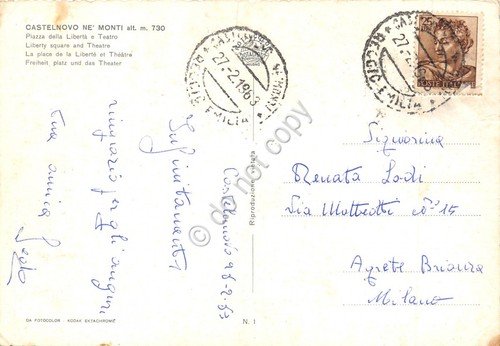 CASTELNOVO NE' MONTI alt. m. 730
Piazza della Libertà e Teatro
Liberty square and Theatre
La place de la Liberté et Théâtre
Freiheit platz und das Theater
CASTELNOVO NE' MONTI
27.2.1963
REGGIO EMILIA
27.2
REGGIO EMILIA
do not copy
Riproduzione vietata
Castelnovo
Infinitamente
ringrazio per gli auguri
tua amica
Signorina
Renata Lodi
Via Matteotti n° 15
Agrate Brianza
Milano
DA FOTOCOLOR - KODAK EKTACHROME
N. 1